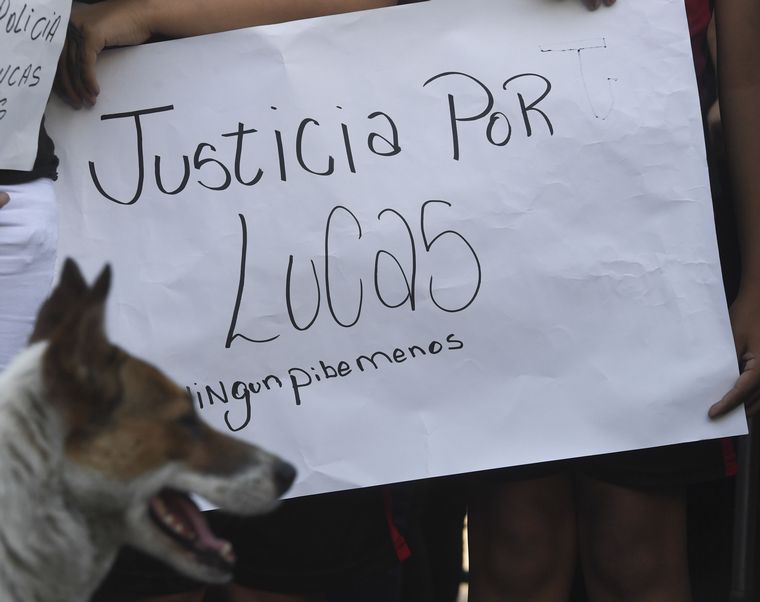 POLICIA
UCAS
Justicia Por T
Lucas
NiNgun pibe menos